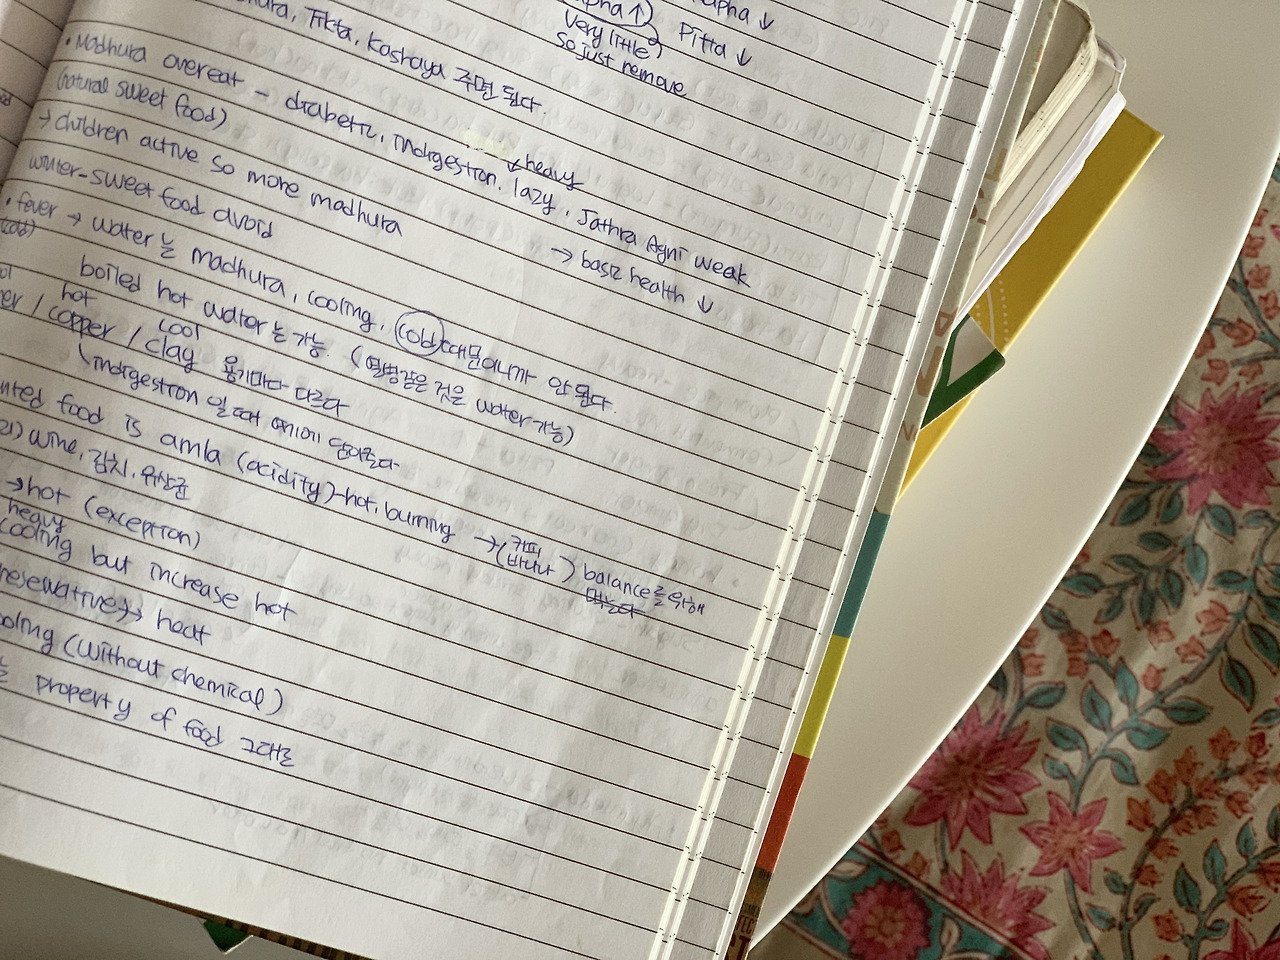 pha↑ Kapha↓
(very little) Pitta↓
so just remove
Tikta, Kashaya 주면 된다.
• Madhura overeat – diabetic, indigestion, lazy, Jathra Agni weak
↓ heavy
(natural sweet food) → basic health ↓
→ children active so more madhura
winter-sweet food avoid
• fever → water는 madhura, cooling, cold 때문이니까 안 된다.
boiled hot water는 가능. (열병같은 것은 water 가능)
hot cool
/ copper / clay 용기마다 다르다
indigestion 일때
food is amla (acidity)-hot, burning → (커피 바나나) balance를 위해
wine, 김치, 유산균 먹는다
→ hot (exception)
heavy
cooling but increase hot
→ heat
(without chemical)
는 property of food 그대로